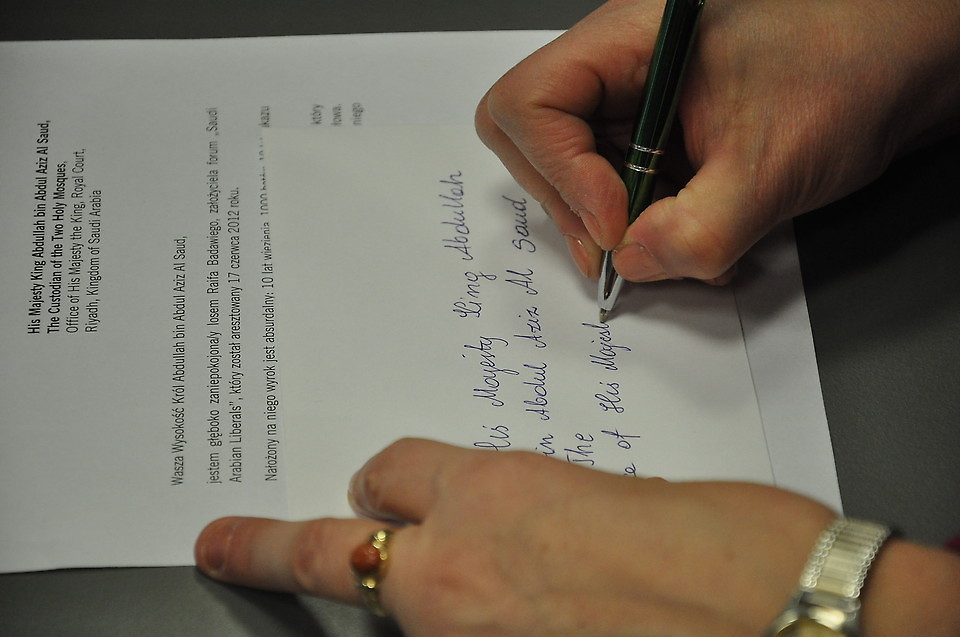 His Majesty King Abdullah bin Abdul Aziz Al Saud,
The Custodian of the Two Holy Mosques,
Office of His Majesty the King, Royal Court,
Riyadh, Kingdom of Saudi Arabia
Wasza Wysokość Król Abdullah bin Abdul Aziz Al Saud,
jestem głęboko zaniepokojony losem Raifa Badawiego, założyciela forum „Saudi
Arabian Liberals”, który został aresztowany 17 czerwca 2012 roku.
Nałożony na niego wyrok jest absurdalny: 10 lat więzienia, 1000 batów, 10 kazu
który
niego
His Majesty King Abdullah
in Abdul Aziz Al Saud
The
of His Majest